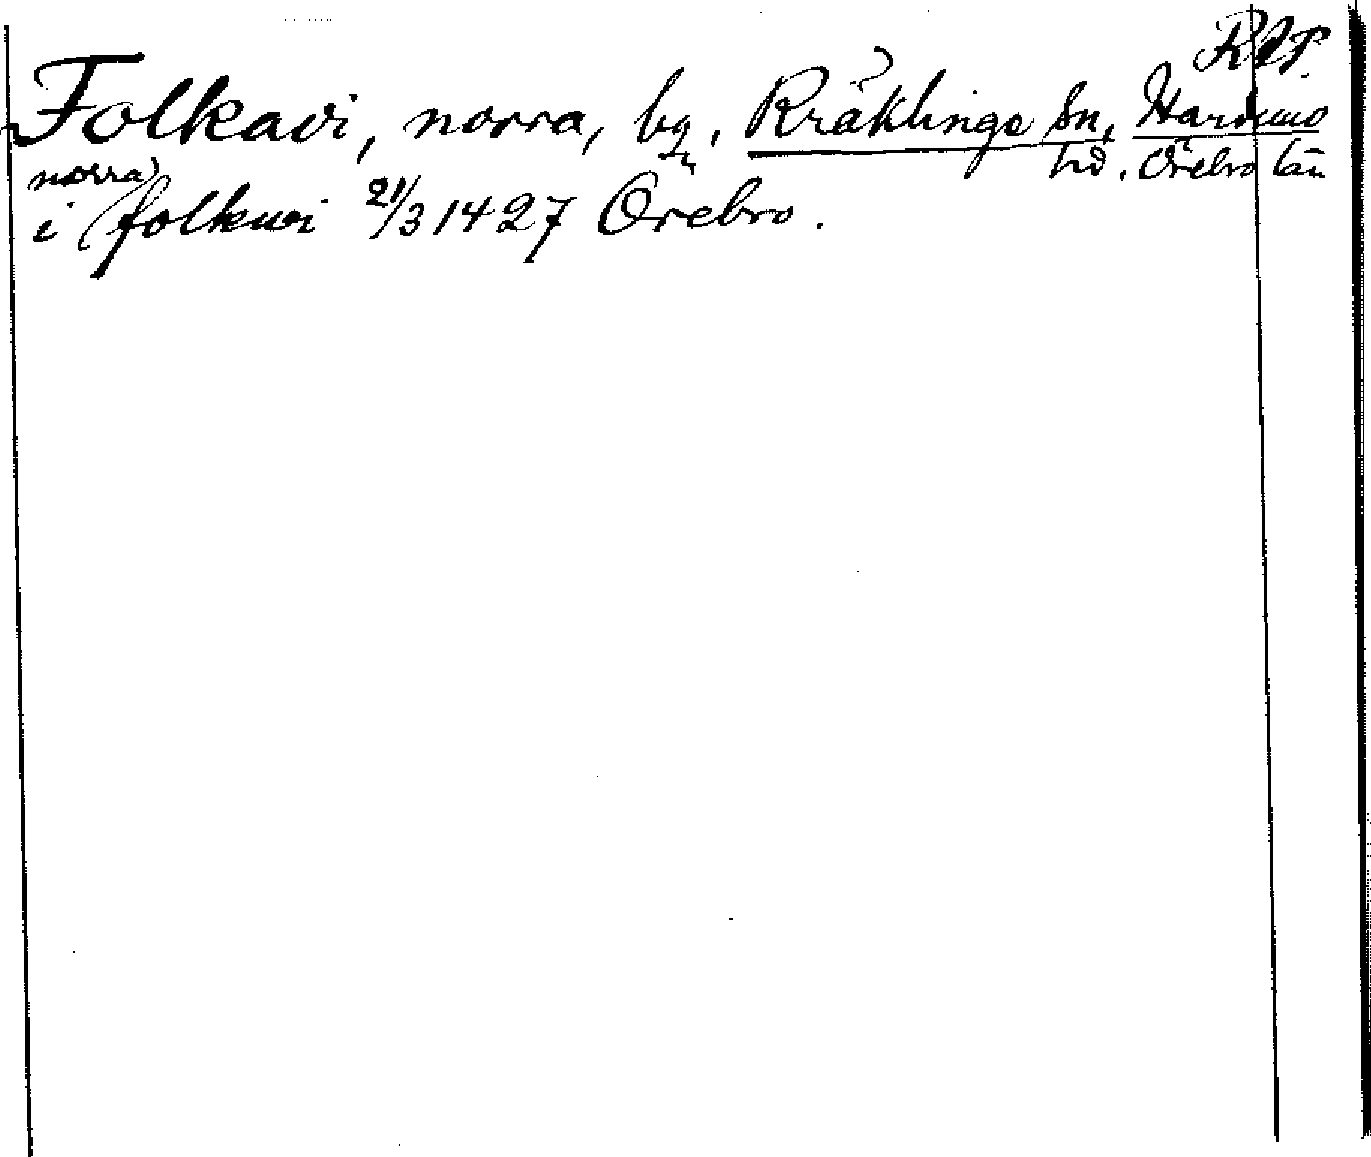 RAP.
Folkavi, norra, by, Kräklinge sn, Hardemo
hd. Örebro län
norra)
i (folkavi 21/3 1427 Örebro.